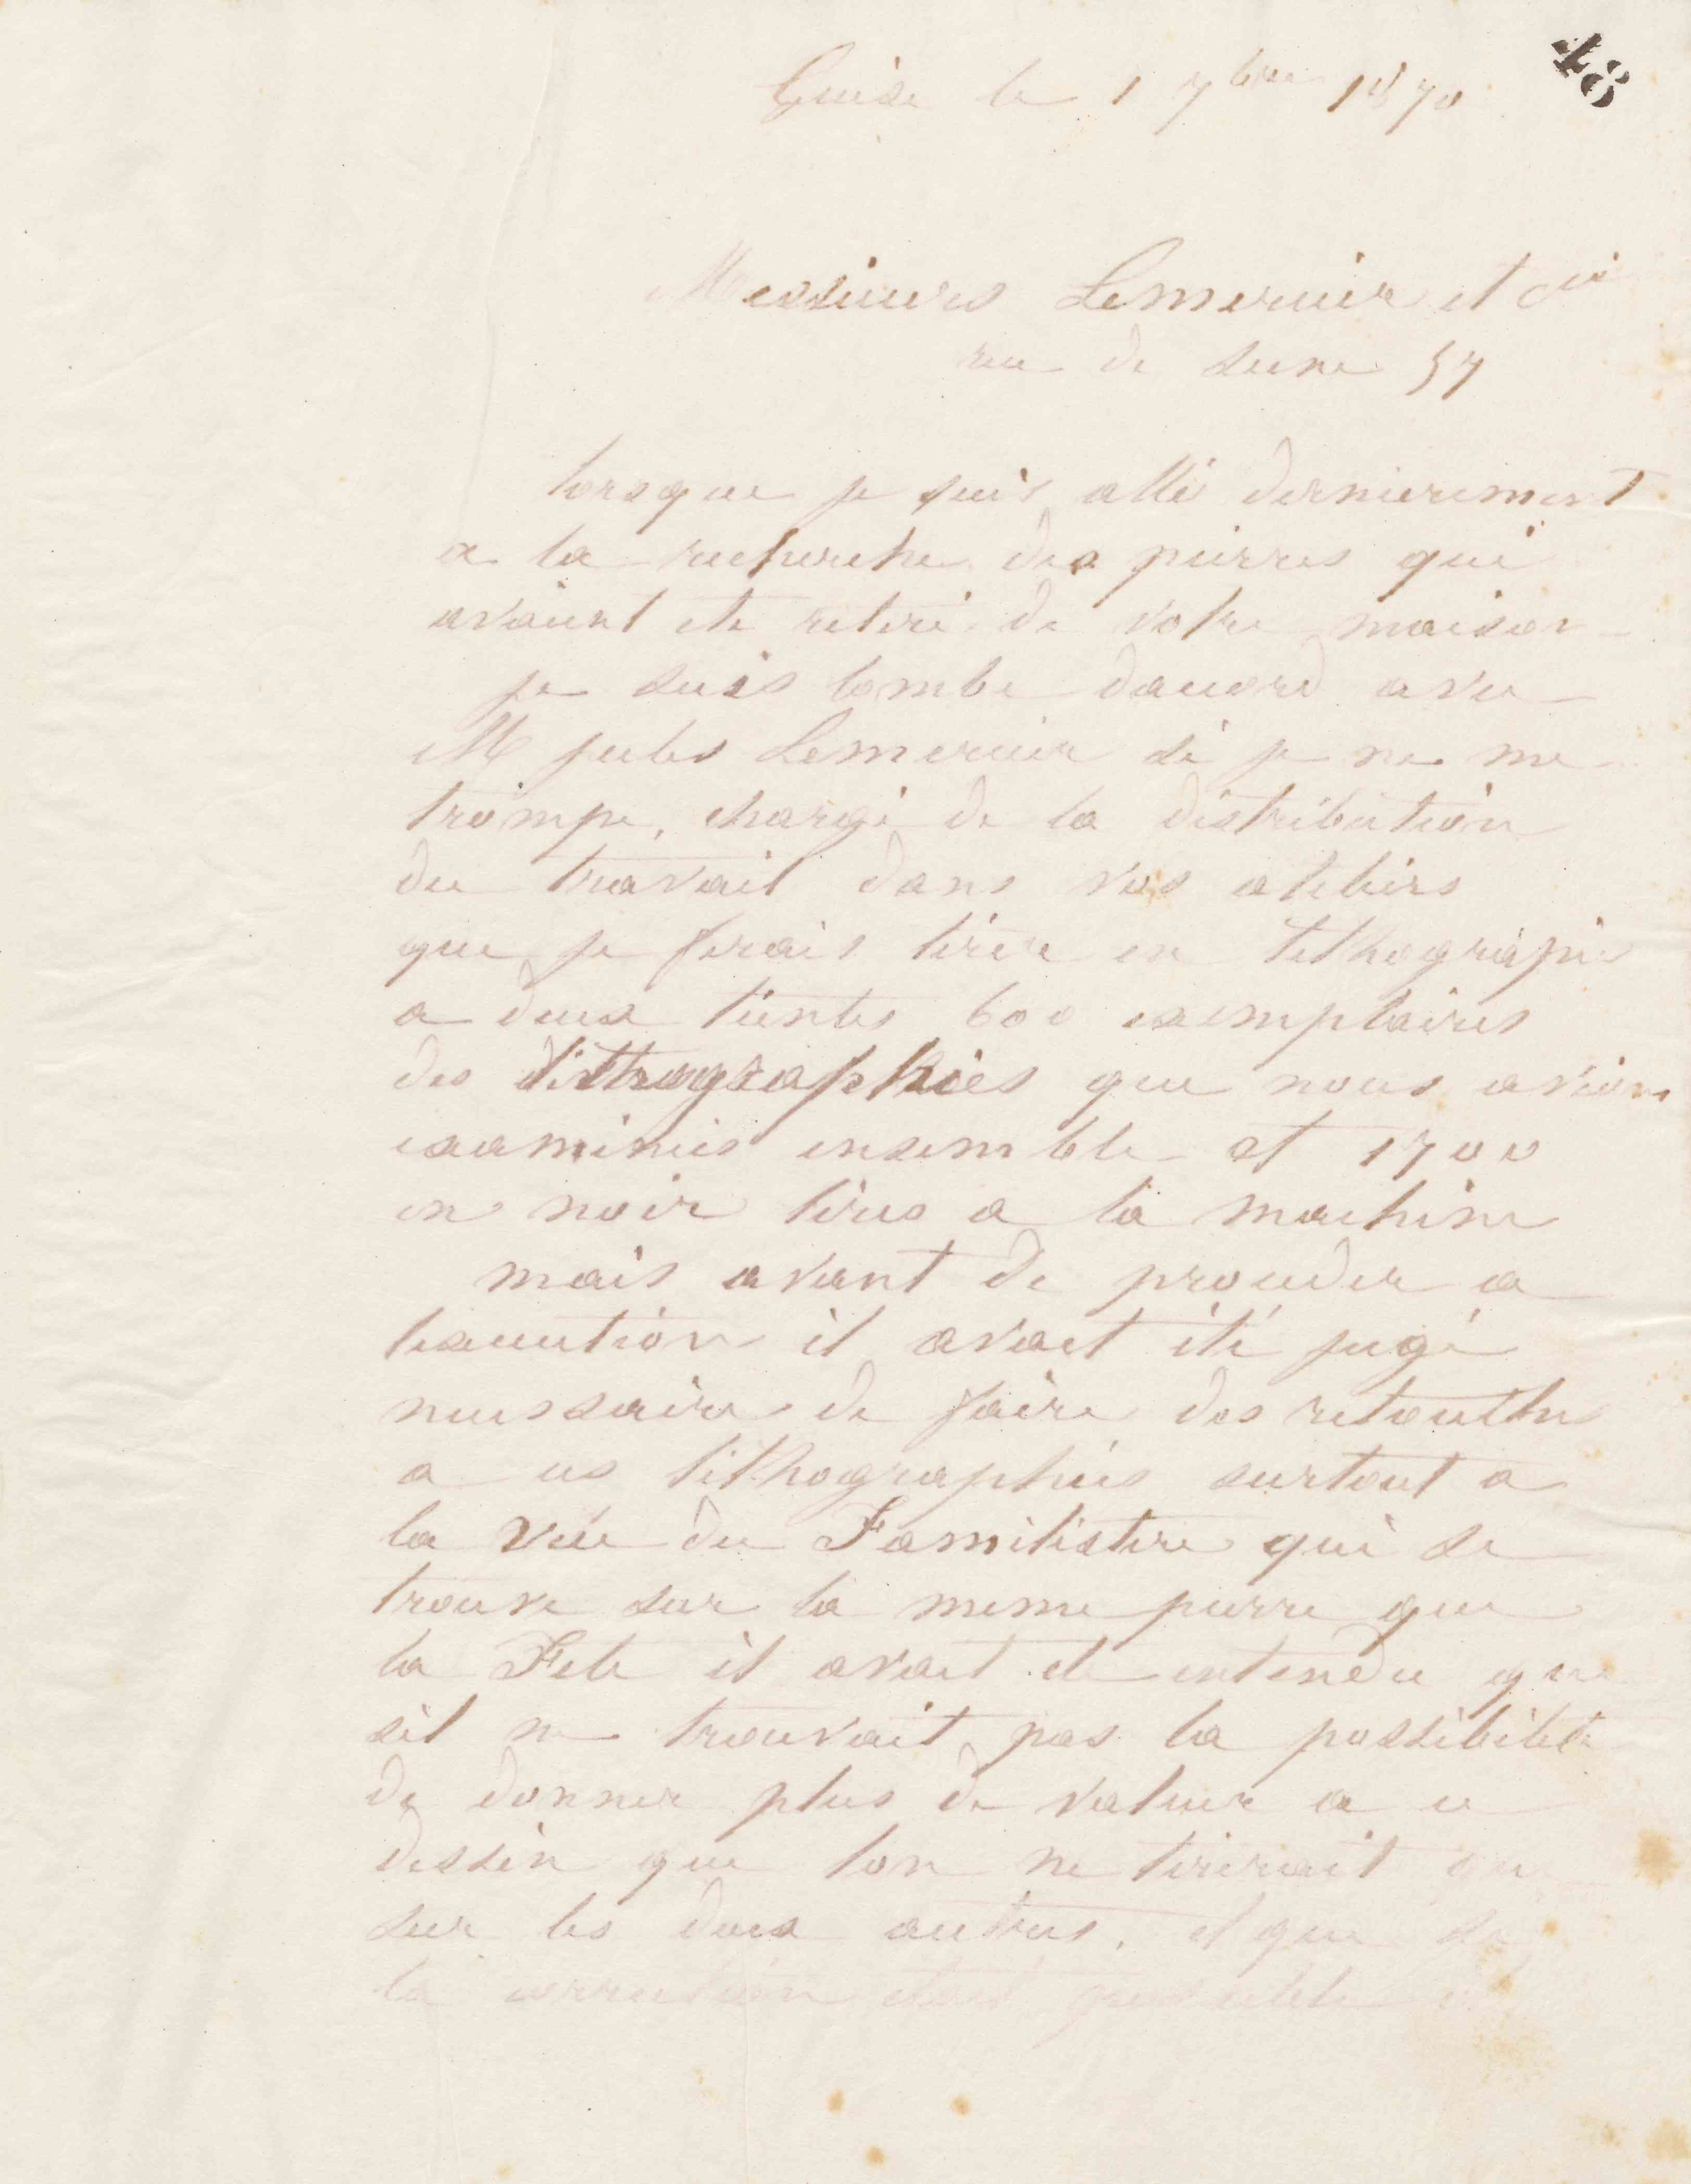 48
Guise le 1 7bre 1870
Messieurs Lemercier et Cie
rue de seine 57
lorsque je suis allé dernierement
a la recherche des pierres qui
avaient ete retiré de votre maison
je suis tombe daccord avec
M jules Lemercier si je ne me
trompe, chargé de la distribution
du travail dans vos ateliers
que je ferais tirer en lithographie
a deux teintes 600 exemplaires
des lithographies que nous avions
examinées ensemble et 1700
en noir tirés a la machine
mais avant de proceder a
lexecution il avait été jugé
necessaire de faire des retouches
a ces lithographies surtout a
la vue du Familistere qui se
trouve sur la meme pierre que
la Fete il avait ete entendu que
sil ne trouvait pas la possibilité
de donner plus de valeur a ce
dessin que lon ne tirerait que
sur les deux autres, et que si
la correction etait possible